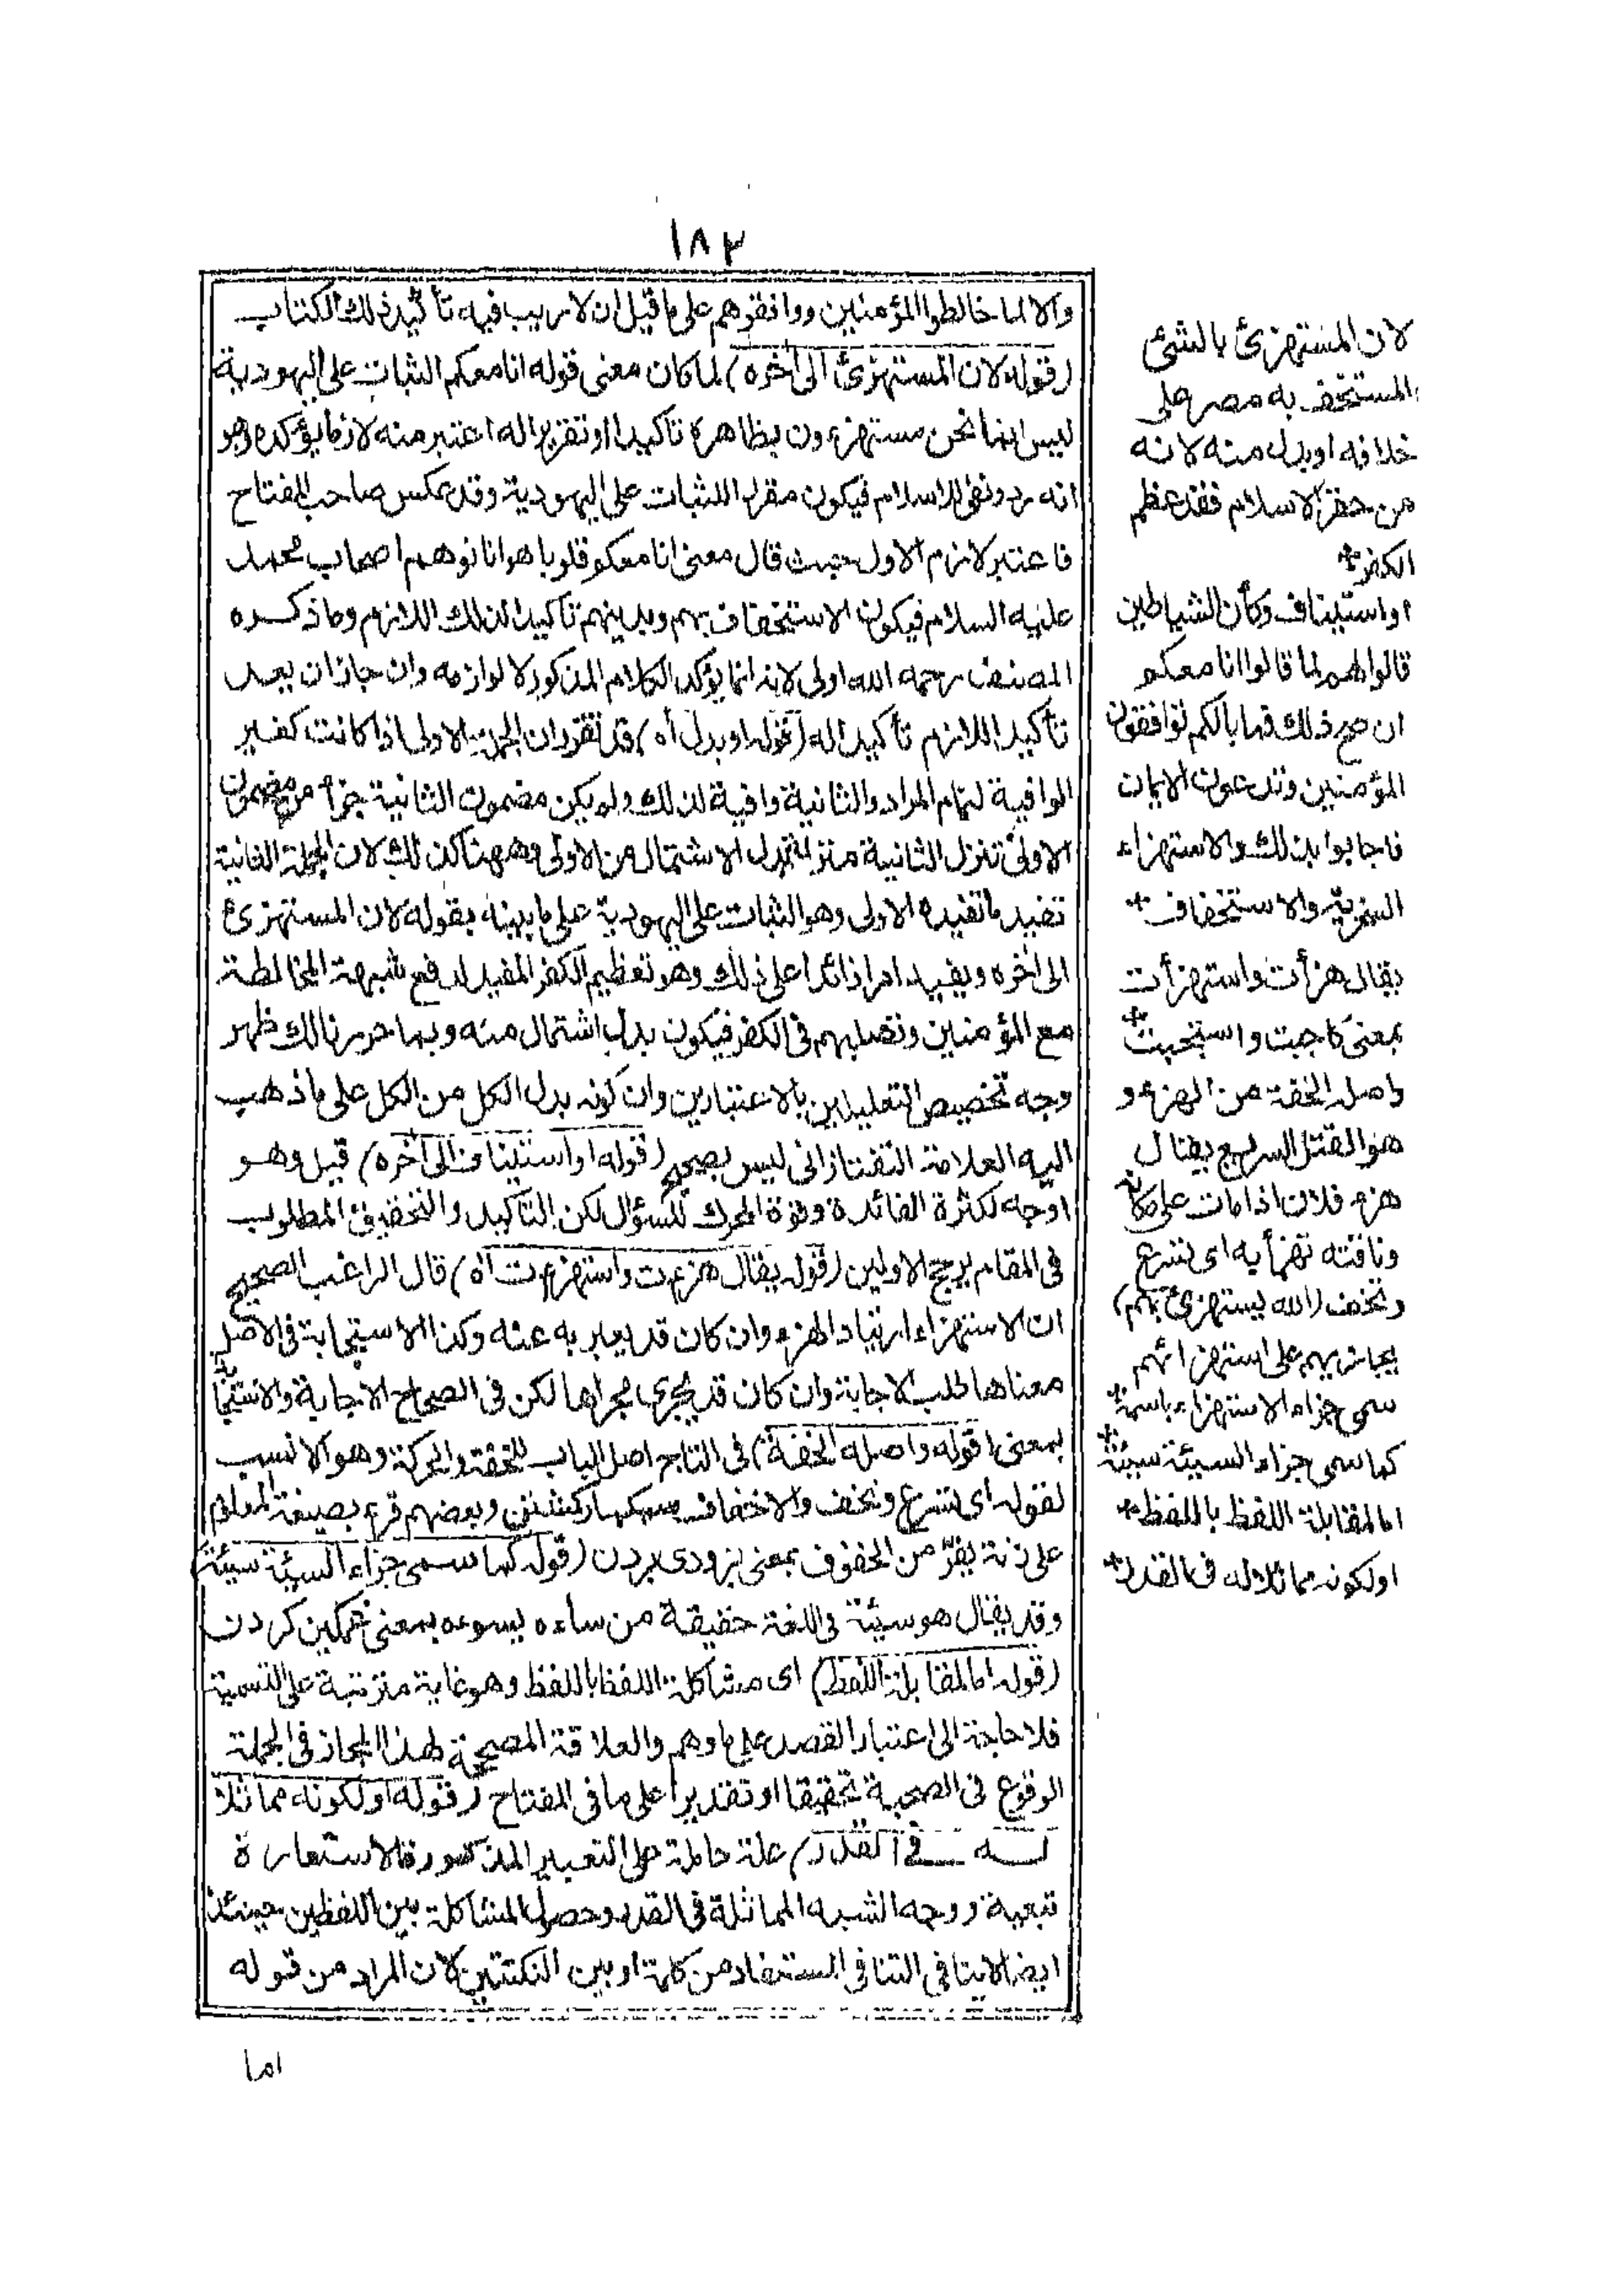 ١٨٢
والا لما خالطوا المؤمنين ووافقوهم على ما قيل ان لا ريب فيه تأكيد ذلك الكتاب
(قوله لان المستهزئ الى آخره) لما كان معنى قوله انا معكم الثبات على اليهودية
ليس انما نحن مستهزءون بظاهره تاكيدا او تقريرا له اعتبر منه لازما يؤكده وهو
انه رد ونفى للاسلام فيكون مقررا للثبات على اليهودية وقد عكس صاحب المفتاح
فاعتبر لازم الاول حيث قال معنى انا معكم قلوبا هو انا نوهم اصحاب محمد
عليه السلام فيكون الاستخفاف بهم وبدينهم تاكيدا لذلك اللازم وما ذكره
المصنف رحمه الله اولى لانه انما يؤكد الكلام المذكور لا لوازمه وان جاز ان يعد
تأكيد اللازم تأكيدا له (قوله او بدل اه) قد تقرر ان الجملة الاولى اذا كانت كغير
الوافية لتمام المراد والثانية وافية لذلك ولم يكن مضمون الثانية جزأ من مضمون
الاولى تنزل الثانية منزلة بدل الاشتمال من الاولى وههنا كذلك لان الجملة الثانية
تفيد ما تفيده الاولى وهو الثبات على اليهودية على ما بينه بقوله لان المستهزئ
الى آخره ويفيد امرا زائدا على ذلك وهو تعظيم الكفر المفيد لدفع شبهة المخالطة
مع المؤمنين وتصلبهم فى الكفر فيكون بدل اشتمال منه وبما حررنا لك ظهر
وجه تخصيص التعليلين بالاعتبارين وان كونه بدل الكل من الكل على ما ذهب
اليه العلامة التفتازانى ليس بصحيح (قوله او استيناف الى آخره) قيل وهو
اوجه لكثرة الفائدة وقوة المحرك للسؤال لكن التأكيد والتحقيق المطلوب
فى المقام يرجح الاولين (قوله يقال هزءت واستهزءت اه) قال الراغب الصحيح
ان الاستهزاء ارتياد الهزء وان كان قد يعبر به عنه وكذا الاستجابة فى الاصل
معناها طلب الاجابة وان كان قد يجرى مجراها لكن فى الصحاح الاجابة والاستجابة
بمعنى (قوله واصله الخفة) فى التاج اصل الباب للخفة والحركة وهو الانسب
لقوله اى تسرع وتخف والاخفاف سبكبار گشتن وبعضهم قرء بصيغة المعلوم
على زنة يفرّ من الخفوف بمعنى بزودى بردن (قوله كما سمى جزاء السيئة سيئة)
وقد يقال هو سيئة فى اللغة حقيقة من ساءه يسوءه بمعنى غمگين كردن
(قوله اما لمقابلة اللفظ) اى مشاكلة اللفظ باللفظ وهو غاية مترتبة على التسمية
فلا حاجة الى اعتبار القصد على ما وهم والعلاقة المصححة لهذا المجاز فى الجملة
الوقوع فى الصحبة تحقيقا او تقديرا على ما فى المفتاح (قوله او لكونه مماثلا
له فى القدر) علة حاملة على التعبير المذكور فالاستعارة
تبعية ووجه الشبه المماثلة فى القدر وحصول المشاكلة بين اللفظين حينئذ
ايضا لا ينافى التنافى المستفاد من كلمة او بين النكتتين لان المراد من قوله
اما
لان المستهزئ بالشئ
المستخف به مصر على
خلافه او بدل منه لانه
من حقر الاسلام فقد عظم
الكفر*
او استيناف وكأن الشياطين
قالوا لهم لما قالوا انا معكم
ان صح ذلك فما بالكم توافقون
المؤمنين وتدعون الايمان
فاجابوا بذلك والاستهزاء
السخرية والاستخفاف*
يقال هزأت واستهزأت
بمعنى كاجبت واستجبت*
واصله الخفة من الهزء و
هو القتل السريع يقال
هزء فلان اذا مات على مكانه
وناقته تهزأ به اى تسرع
وتخف (الله يستهزئ بهم)
يجازيهم على استهزائهم
سمى جزاء الاستهزاء باسمه*
كما سمى جزاء السيئة سيئة*
اما لمقابلة اللفظ باللفظ*
او لكونه مماثلا له فى القدر*